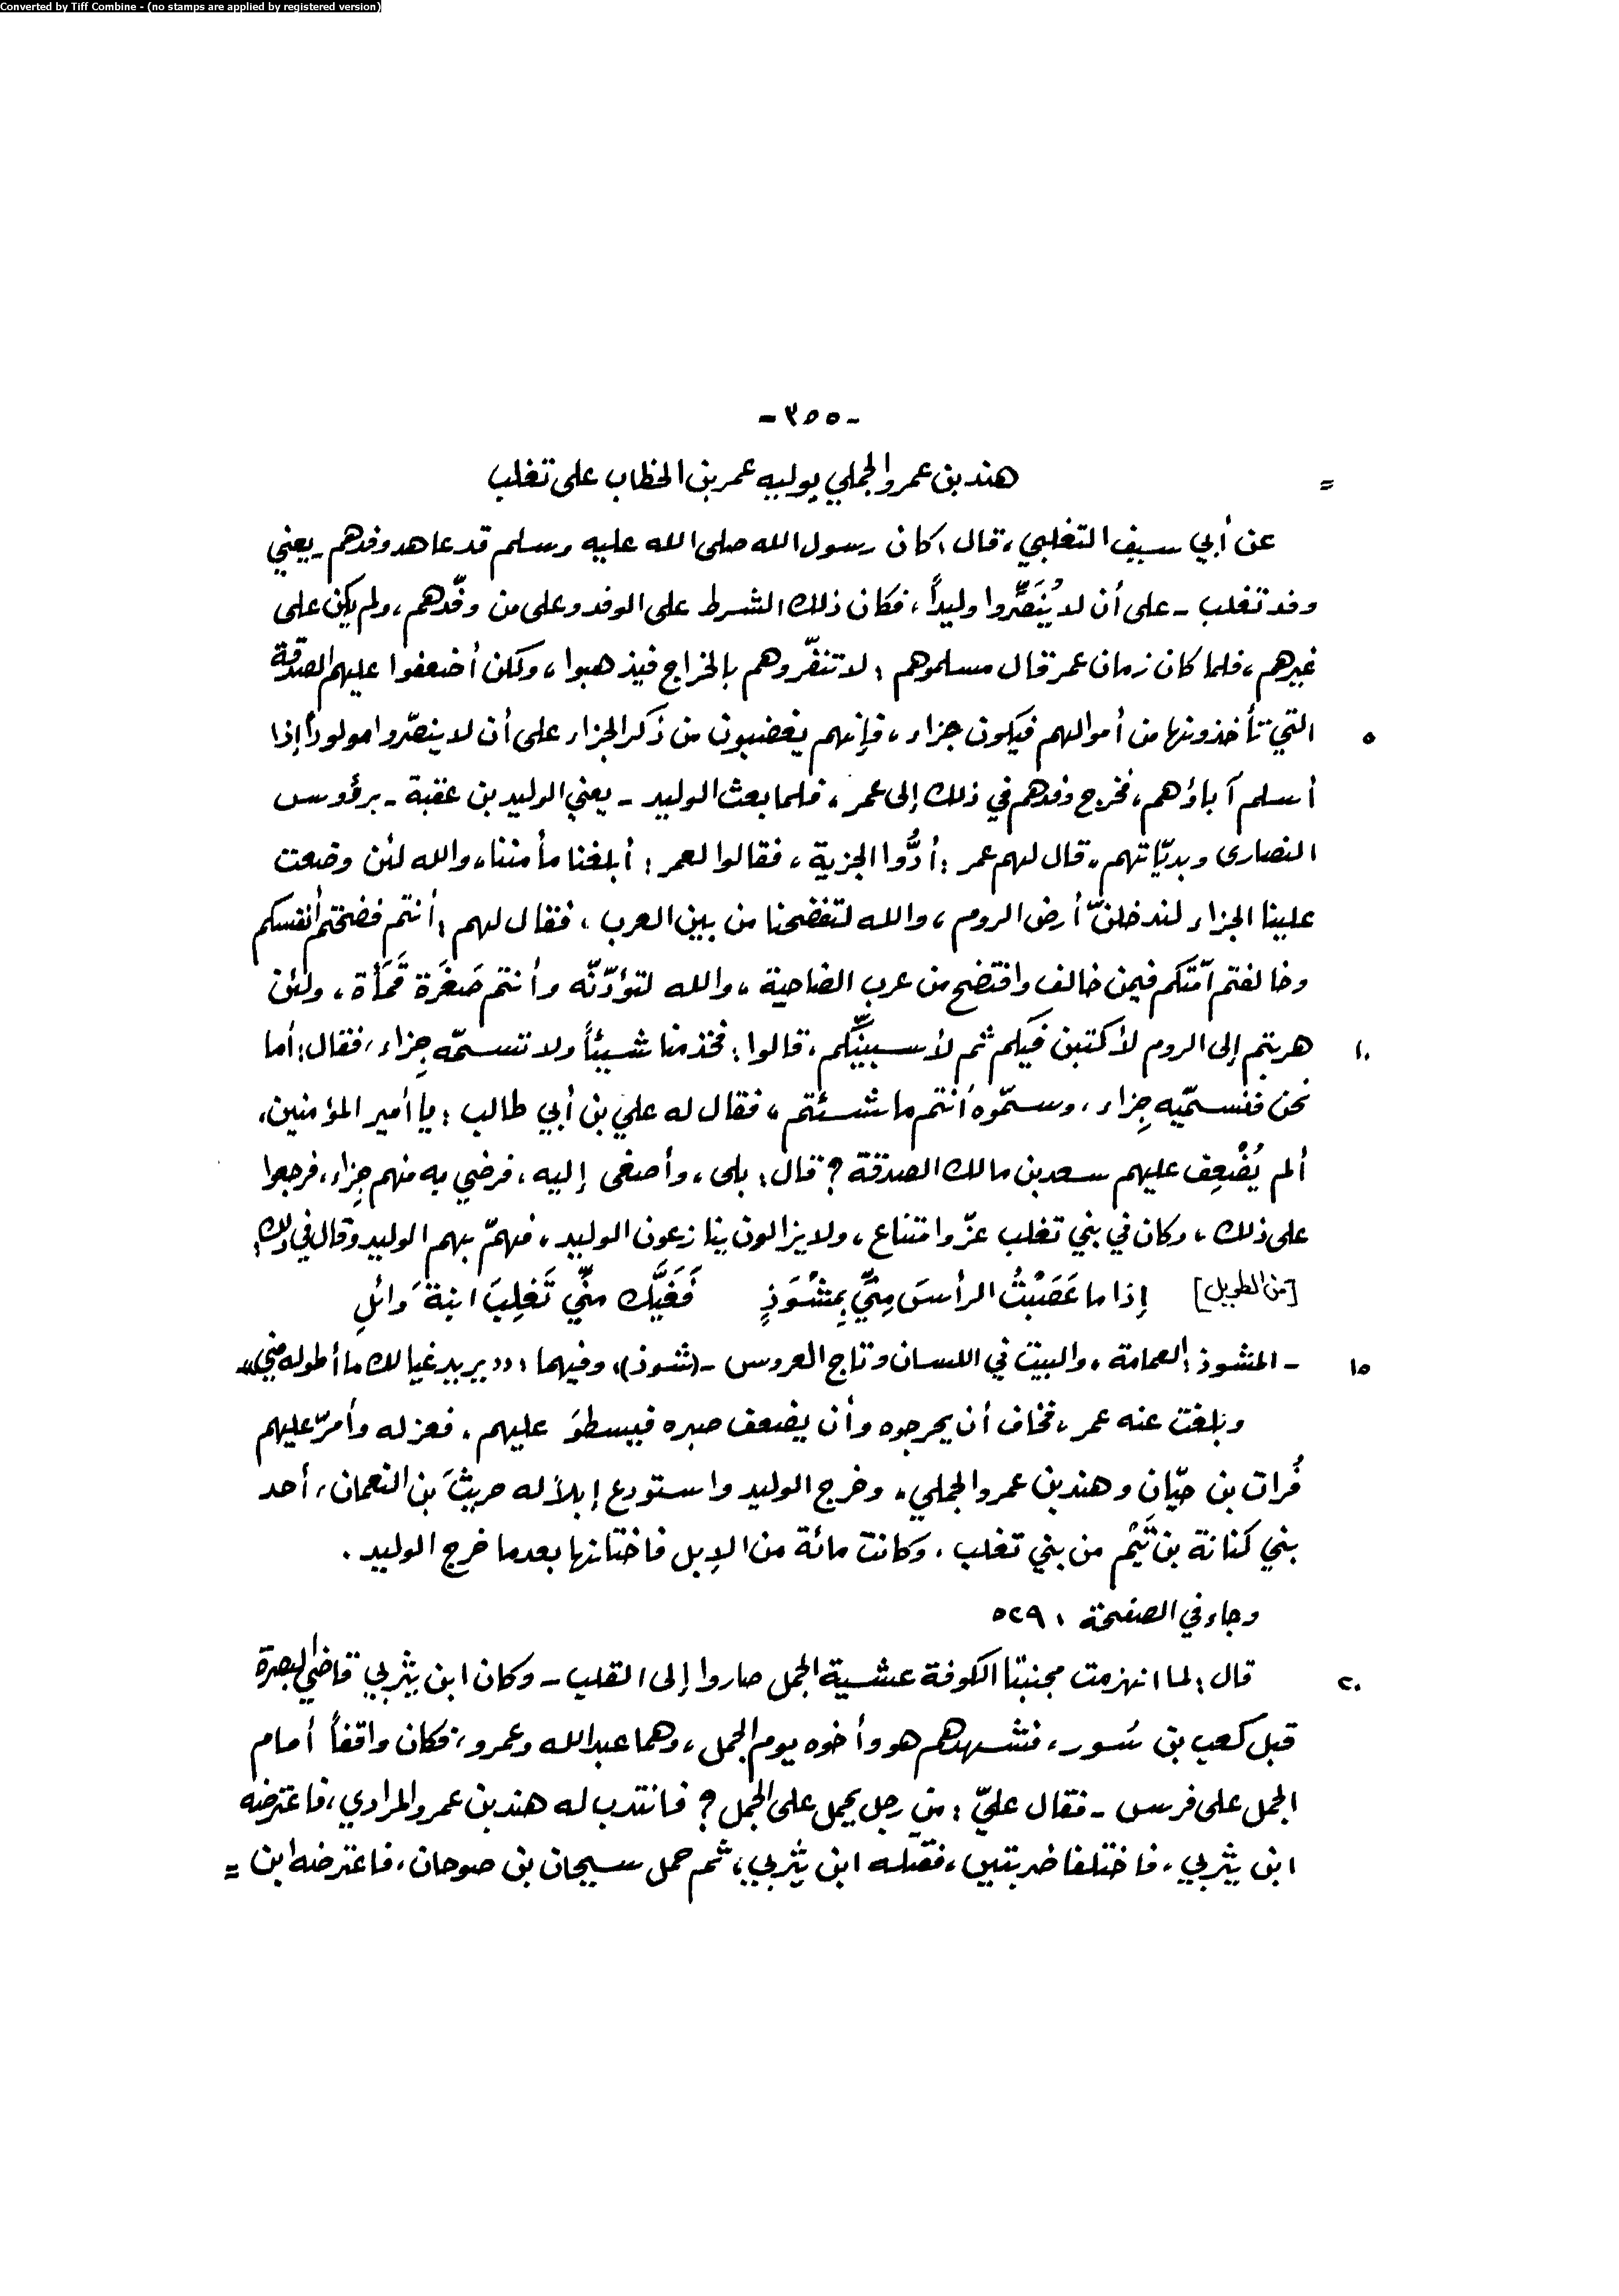 Converted by Tiff Combine - (no stamps are applied by registered version)
-٣٥٥-
= هند بن عمرو الجملي يوليه عمر بن الخطاب على تغلب
عن أبي سيف التغلبي، قال: كان رسول الله صلى الله عليه وسلم قد عاهد وفدهم - يعني
وفد تغلب - على أن لا يُنَصِّروا وليداً، فكان ذلك الشرط على الوفد وعلى من وفّدهم، ولم يكن على
غيرهم، فلما كان زمان عمر قال مسلموهم: لا تنفّروهم بالخراج فيذهبوا، ولكن أضعفوا عليهم الصدقة
٥ التي تأخذونها من أموالهم فيكون جزاء، فإنهم يغضبون من ذكر الجزاء على أن لا ينصّروا مولوداً إذا
أسلم آباؤهم، فخرج وفدهم في ذلك إلى عمر، فلما بعث الوليد - يعني الوليد بن عقبة - برؤوس
النصارى وبديّاتهم، قال لهم عمر: أدُّوا الجزية، فقالوا لعمر: أبلغنا مأمننا، والله لئن وضعت
علينا الجزاء لندخلنّ أرض الروم، والله لتفضحنا من بين العرب، فقال لهم: أنتم فضحتم أنفسكم
وخالفتم أمّتكم فيمن خالف وافتضح من عرب الضاحية، والله لتؤدّنّه وأنتم صَغَرَة قَمَأَة، ولئن
١٠ هربتم إلى الروم لأكتبن فيكم ثم لأسبينّكم، قالوا: فخذ منا شيئاً ولا تسمّه جِزاء، فقال: أما
نحن فنسمّيه جِزاء، وسمّوه أنتم ما شئتم، فقال له علي بن أبي طالب: يا أمير المؤمنين،
ألم يُضْعِف عليهم سعد بن مالك الصدقة؟ قال: بلى، وأصغى إليه، فرضي به منهم جِزاء، فرجعوا
على ذلك، وكان في بني تغلب عزّ وامتناع، ولا يزالون ينازعون الوليد، فهمّ بهم الوليد وقال في ذلك:
[من الطويل] إذا ما عَصَبْتُ الرأسَ مِنّي بِمِشْوَذٍ فَغَيَّك مِنّي تَغلِبَ ابنةَ وائلِ
١٥ - المشوذ: العمامة، والبيت في اللسان وتاج العروس - (شوذ)، وفيهما: ((يريد غيا لك ما أطوله مني)).
وبلغت عنه عمر، فخاف أن يحرجوه وأن يضعف صبره فيسطوَ عليهم، فعزله وأمرّ عليهم
فُرات بن حيّان وهند بن عمرو الجملي، وخرج الوليد واستودع إبلاً له حريثَ بن النعمان، أحد
بني كنانة بن تَيْم من بني تغلب، وكانت مائة من الإبل فاختانها بعدما خرج الوليد.
وجاء في الصفحة: ٥٢٩
٢٠ قال: لما انهزمت مجنبتا الكوفة عشية الجمل صاروا إلى القلب - وكان ابن يثربي قاضي البصرة
قبل كعب بن سُور، فشهدهم هو وأخوه يوم الجمل، وهما عبدالله وعمرو، فكان واقفاً أمام
الجمل على فرس - فقال عليّ: من رجل يحمل على الجمل؟ فانتدب له هند بن عمرو المرادي، فاعترضه
ابن يثربي، فاختلفا ضربتين، فقتله ابن يثربي، ثم حمل سيحان بن صوحان، فاعترضه ابن =